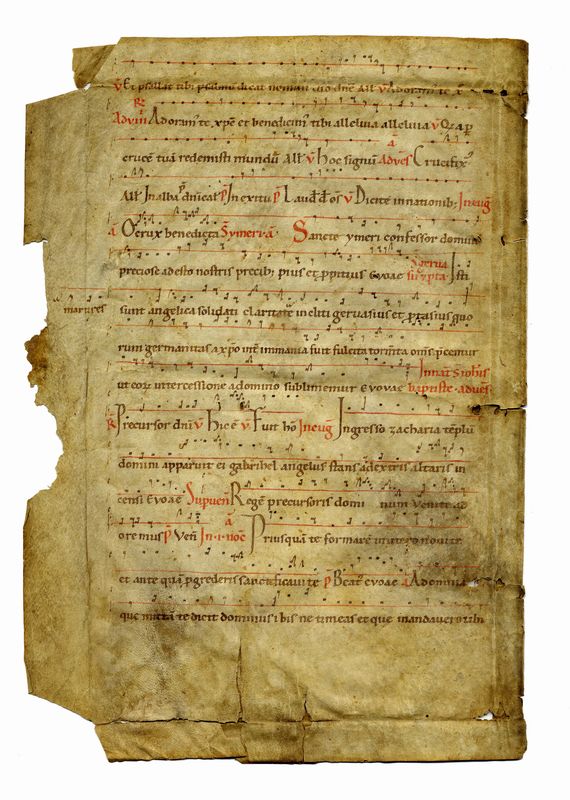 ℣ Et psallat tibi psalmū dicat nomini tuo dn̄e All' ℣ Adoram' te x
℟
Ad vin̄ Adoram' te xp̄e et benedicim' tibi alleluia alleluia ℣ Q̄a ꝑ
crucē tuā redemisti mundū All' ℣ hoc signū Ad ves Crucifix'
All' In alba dnīcaƚ P̄ In exitu P̄ Laud ℣ Dicite in nationib; In eūg
a O crux benedicta S ymeri a Sancte ymeri confessor domini
preciose adesto nostris precib; pius et ꝓpitius evoae Isti
martires
sunt angelica solidati claritate incliti gervasius et ꝓtasius quo
rum germanitas a xp̄o immania fuit fulcita torm̄ta om̄s p̄cemur
In nat S Ioh̄is
ut eorz intercessione a domino sublimemur evovae baptiste ad ves
℟ Precursor dn̄i ℣ Hic ē ℣ Fuit hō In eūg Ingresso zacharia tēplū
domini apparuit ei gabrihel angelus stans a dextris altaris in
cēnsi evoae Sup ven̄ Regē precursoris domi num venite ad
a
oremus P̄ Ven̄ In .i. noc Priusquā te formarē in utero novi te
et ante quā ꝓgrederis sanctificavi te P Beat' evoae a Ad omnia
que mittā te dicit dominus ibis ne timeas et que mandavero tibi